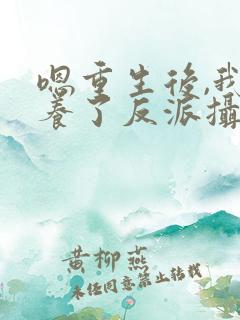 嗯重生後,我
養了反派攝
黄柳燕
未经同意禁止转载